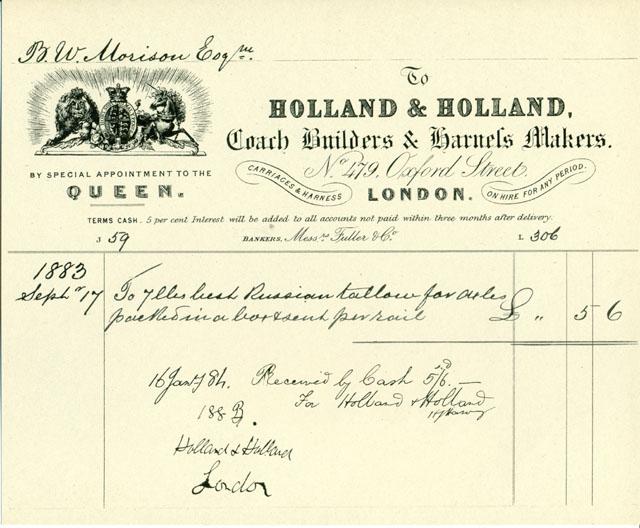 B. W. Morison Esqre.
To
HOLLAND & HOLLAND,
Coach Builders & Harness Makers.
No. 479, Oxford Street.
CARRIAGES & HARNESS
LONDON.
ON HIRE FOR ANY PERIOD.
BY SPECIAL APPOINTMENT TO THE
QUEEN.
TERMS CASH. 5 per cent Interest will be added to all accounts not paid within three months after delivery.
J 59
BANKERS, Messrs. Fuller & Co.
L 306
1883
Septr 17 To 7 lbs best Russian tallow for axles
packed in a box & sent per rail £ " 5 6
16 Jany 84. Received by Cash 5/6.
For Holland & Holland
188
Holland & Holland
London